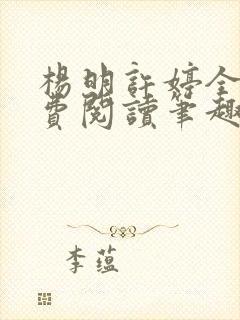 楊明許婷全
費閱讀筆趣
李蘊